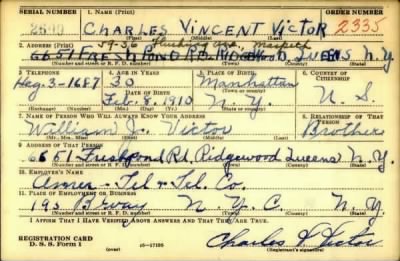 SERIAL NUMBER 1. NAME (Print) ORDER NUMBER
CHARLES VINCENT VICTOR 2335
(First) (Middle) (Last)
2. ADDRESS (Print) 59-36 Flushing Ave. Maspeth
6651 FRESH POND RD. RIDGEWOOD QUEENS N.Y.
(Number and street or R. F. D. number) (Town) (County) (State)
3. TELEPHONE 4. AGE IN YEARS 5. PLACE OF BIRTH 6. COUNTRY OF CITIZENSHIP
Heg. 3-1687 30 Manhattan
DATE OF BIRTH (Town or county)
Feb. 8. 1910 N.Y. U.S.
(Exchange) (Number) (Mo.) (Day) (Yr.) (State or country)
7. NAME OF PERSON WHO WILL ALWAYS KNOW YOUR ADDRESS 8. RELATIONSHIP OF THAT PERSON
William J. Victor Brother
(Mr., Mrs., Miss) (First) (Middle) (Last)
9. ADDRESS OF THAT PERSON
6651 Freshpond Rd. Ridgewood Queens N.Y.
(Number and street or R. F. D. number) (Town) (County) (State)
10. EMPLOYER'S NAME
Amer. Tel & Tel. Co.
11. PLACE OF EMPLOYMENT OR BUSINESS
195 Bway N.Y.C. N.Y.
(Number and street or R. F. D. number) (Town) (County) (State)
I AFFIRM THAT I HAVE VERIFIED ABOVE ANSWERS AND THAT THEY ARE TRUE.
REGISTRATION CARD
D. S. S. Form 1 16-17105 Charles V. Victor
(Registrant's signature)